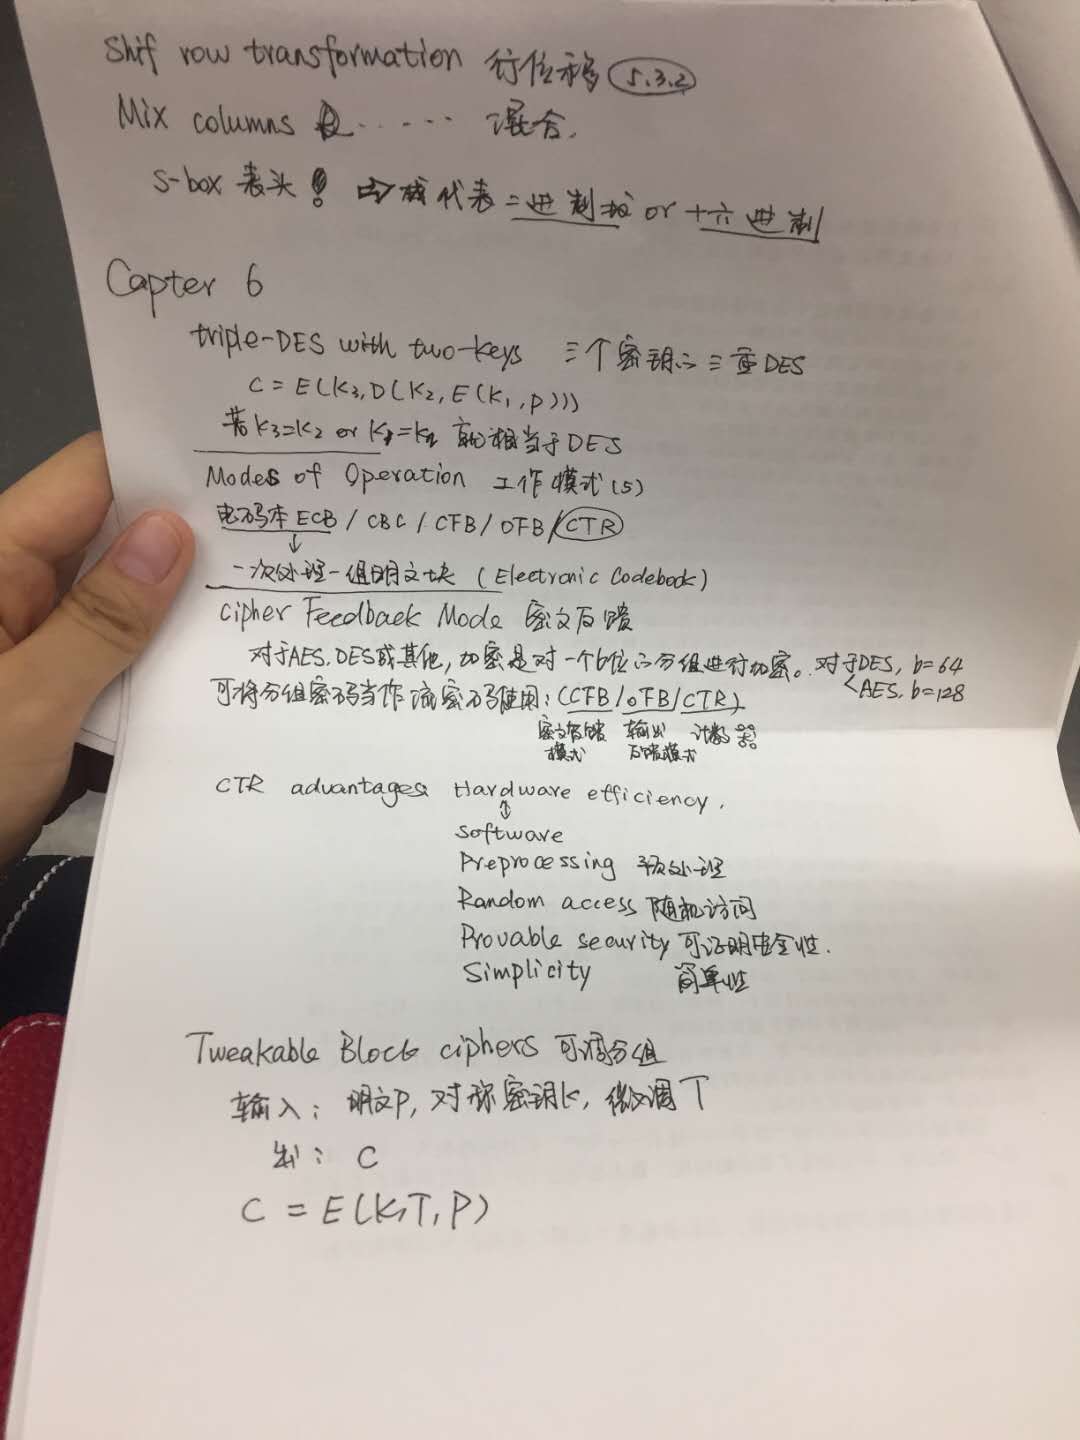 Shif row transformation 行位移 5.3.2
Mix columns ...... 混合.
S-box 表头! ⇨ 或代表二进制 or 十六进制
Capter 6
triple-DES with two-keys 三个密钥的三重DES
C = E(K3, D(K2, E(K1, P)))
若 K3=K2 or 就相当于DES
Modes of Operation 工作模式(5)
电码本 ECB / CBC / CFB / OFB / CTR
↓
一次处理一组明文块 (Electronic Codebook)
Cipher Feedback Mode 密文反馈
对于AES, DES或其他, 加密是对一个b位的分组进行加密。对于DES, b=64
<AES, b=128
可将分组密码当作流密码使用: (CFB/OFB/CTR)
密文反馈 输出 计数器
模式 反馈模式
CTR advantages: Hardware efficiency,
↕
Software
Preprocessing 预处理
Random access 随机访问
Provable security 可证明安全性.
Simplicity 简单性
Tweakable Block ciphers 可调分组
输入: 明文P, 对称密钥K, 微调T
出: C
C = E(K,T,P)